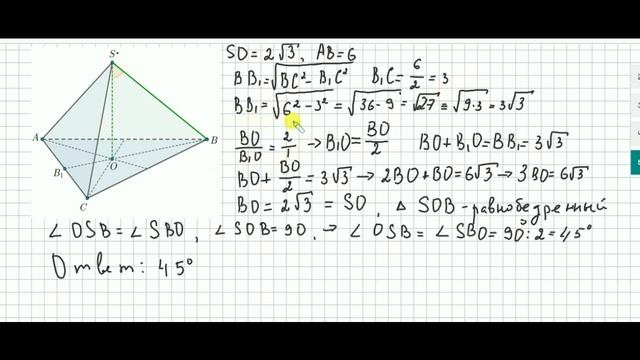 SO = 2√3, AB = 6
BB₁ = √(BC² - B₁C²) B₁C = 6/2 = 3
BB₁ = √(6² - 3²) = √(36 - 9) = √27 = √(9·3) = 3√3
BO/B₁O = 2/1 → B₁O = BO/2 BO + B₁O = BB₁ = 3√3
BO + BO/2 = 3√3 → 2BO + BO = 6√3 → 3BO = 6√3
BO = 2√3 = SO, △ SOB - равнобедренный
∠ OSB = ∠ SBO, ∠ SOB = 90, → ∠ OSB = ∠ SBO = 90:2 = 45°
Ответ: 45°
S
A
B
O
B₁
C